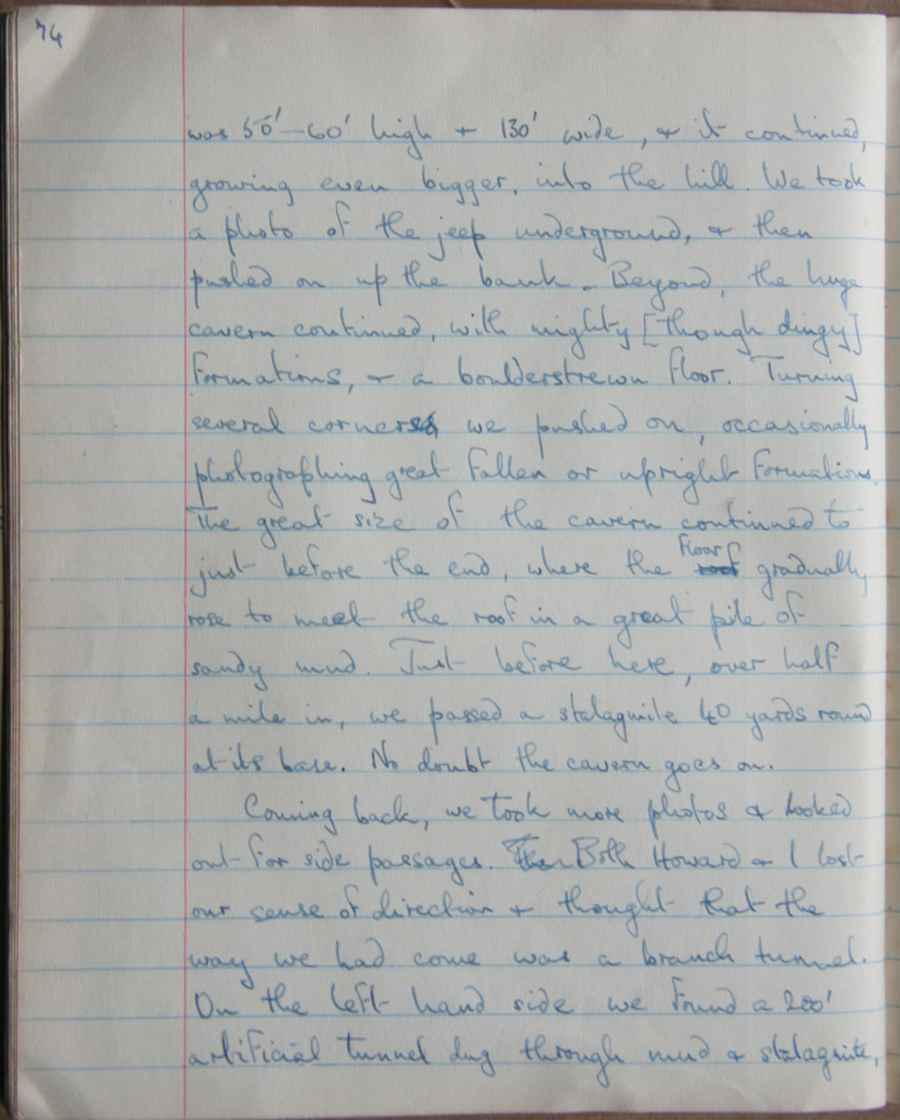 74
was 50'-60' high + 130' wide, + it continued,
growing even bigger, into the hill. We took
a photo of the jeep underground, + then
pushed on up the bank. Beyond, the huge
cavern continued, with mighty [though dingy]
formations, + a boulderstrewn floor. Turning
several corners we pushed on, occasionally
photographing great fallen or upright formations.
The great size of the cavern continued to
just before the end, where the floor roof gradually
rose to meet the roof in a great pile of
sandy mud. Just before here, over half
a mile in, we passed a stalagmite 40 yards round
at its base. No doubt the cavern goes on.
Coming back, we took more photos + looked
out for side passages. Then Both Howard + I lost
our sense of direction + thought that the
way we had come was a branch tunnel.
On the left hand side we found a 200'
artificial tunnel dug through mud + stalagmite,